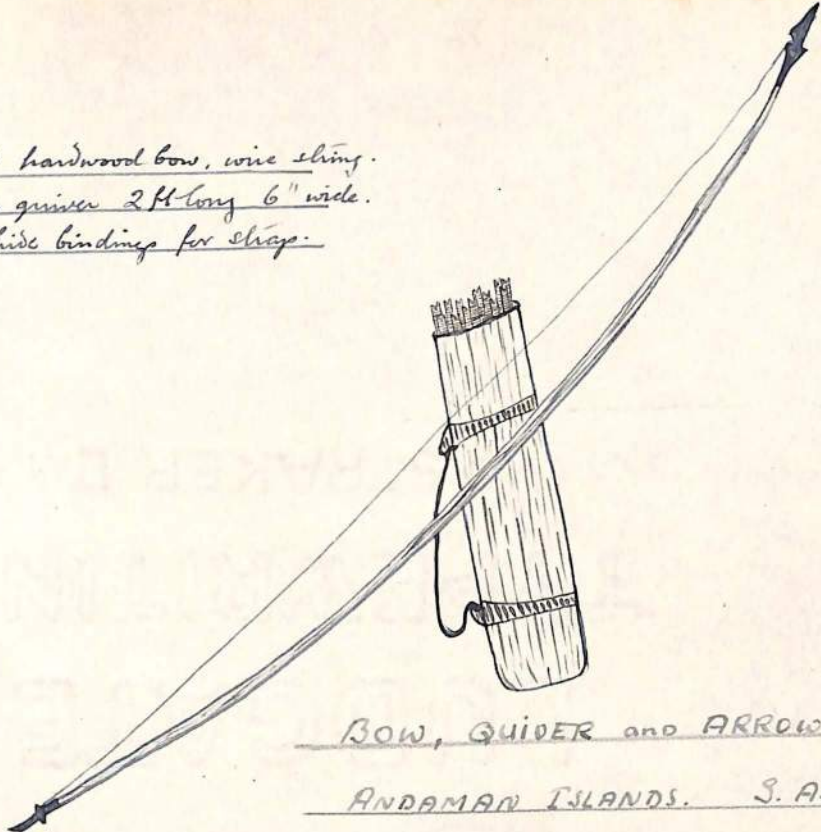 hardwood bow, wire string.
quiver 2 ft long 6" wide.
hide bindings for strap.
BOW, QUIVER and ARROW
ANDAMAN ISLANDS. S. A.